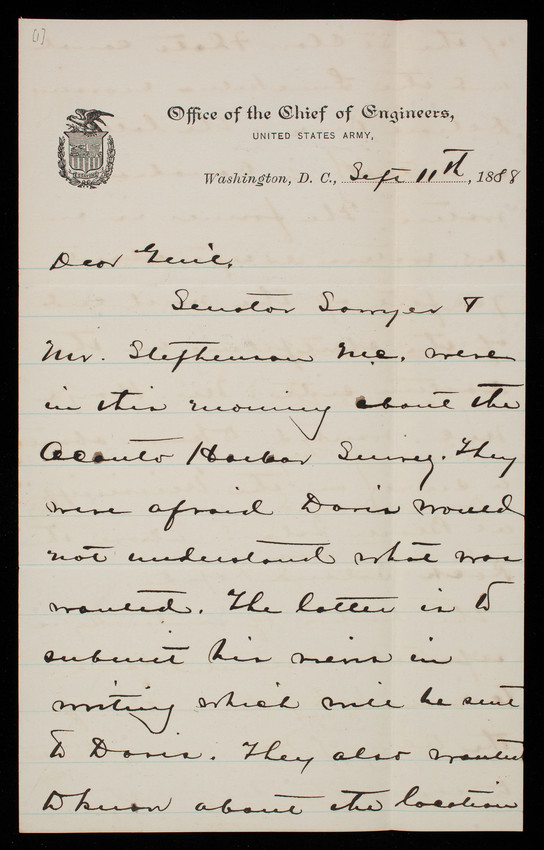 [1]
Office of the Chief of Engineers,
UNITED STATES ARMY,
Washington, D. C., Sept 11th, 1888
Dear Gen'l,
Senator Sawyer &
Mr. Stephenson M.C. were
in this morning about the
Oconto Harbor Survey. They
were afraid Davis would
not understand what was
wanted. The latter is to
submit his views in
writing which will be sent
to Davis. They also wanted
to know about the location